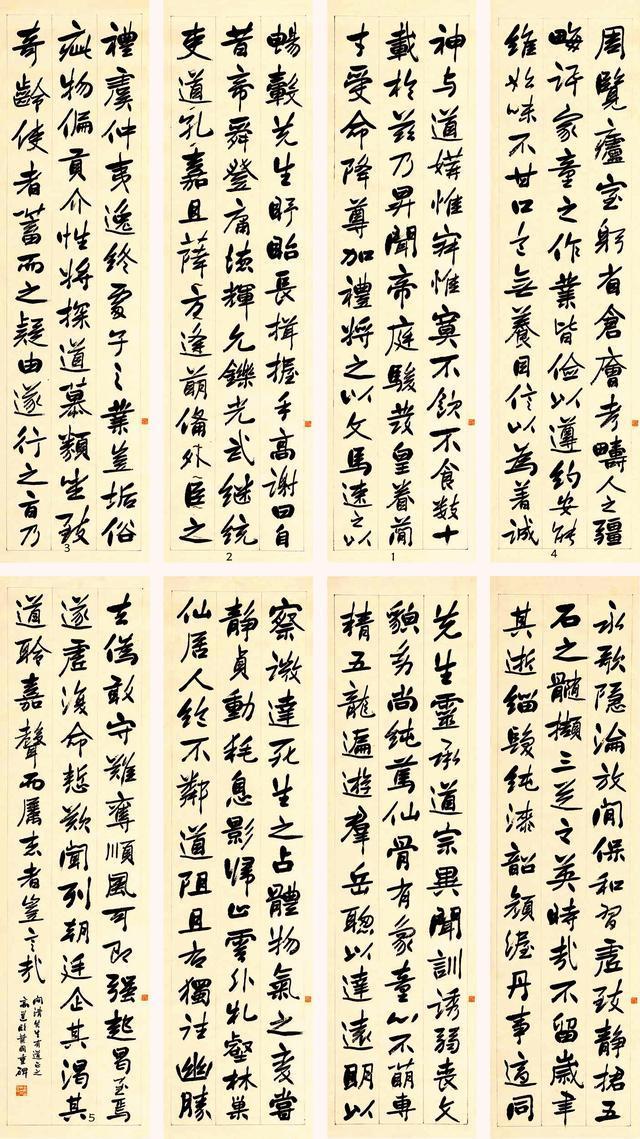 周覽廬室躬省倉廥考疇人之疆
畮評家童之作業皆儉以遵約安能
維始味不甘口之無養目信以為着誠
神与道媾惟寂惟寞不飲不食數十
載於茲乃昇聞帝庭駿發皇眷蕳
才受命降尊加禮將之以文馬速之以
1
暢轂先生盱眙長揖握手高謝曰自
昔帝舜登庸壎輝允鑠光武繼統
吏道孔嘉且薛方逢萌備外臣之
2
禮虞仲夷逸終處子之業豈垢俗
疵物偏貢介性將探道慕類坐致
奇齡使者蓄而之疑由遂行之言乃
3
4
永歌隱淪放閒保和習虛致靜捃五
石之髓擷三芝之英時哉不留歲聿
其逝緇髮純漆韶顏渥丹事適同
先生靈承道宗異聞訓誘弱喪文
貌秀尚純篤仙骨有象童心不萌專
精五龍遍遊群岳聰以達遠明以
察微達死生之占體物氣之變嘗
靜貞動耗息影歸止雲外札壑林巢
仙居人絕不鄰道阻且右獨往幽勝
去僞敢守難奪順風可即强起曷至焉
遂虛復命慙歎聞列朝廷企其渴其
道聆嘉聲而厲志者豈言哉
5